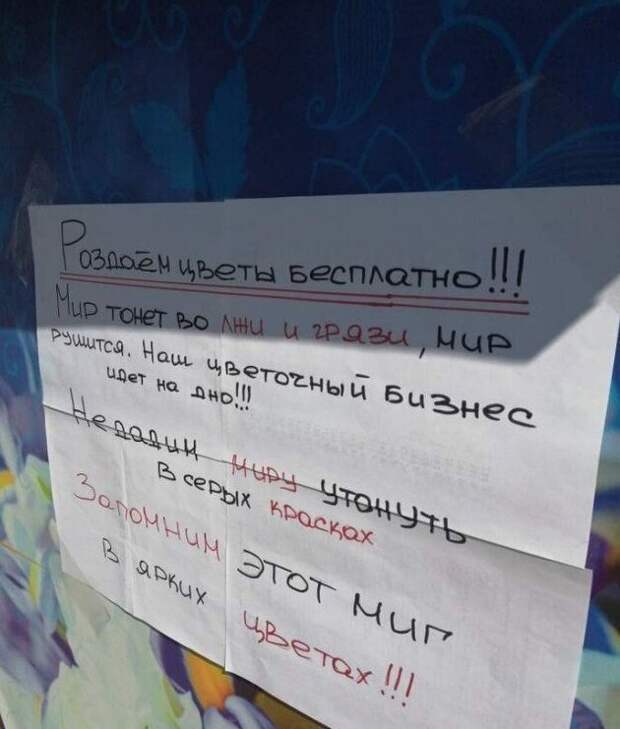 Роздаём цветы бесплатно!!!
Мир тонет во лжи и грязи, мир
рушится. Наш цветочный бизнес
идет на дно!!!
Недадим миру утонуть
в серых красках
Запомним этот миг
в ярких цветах!!!